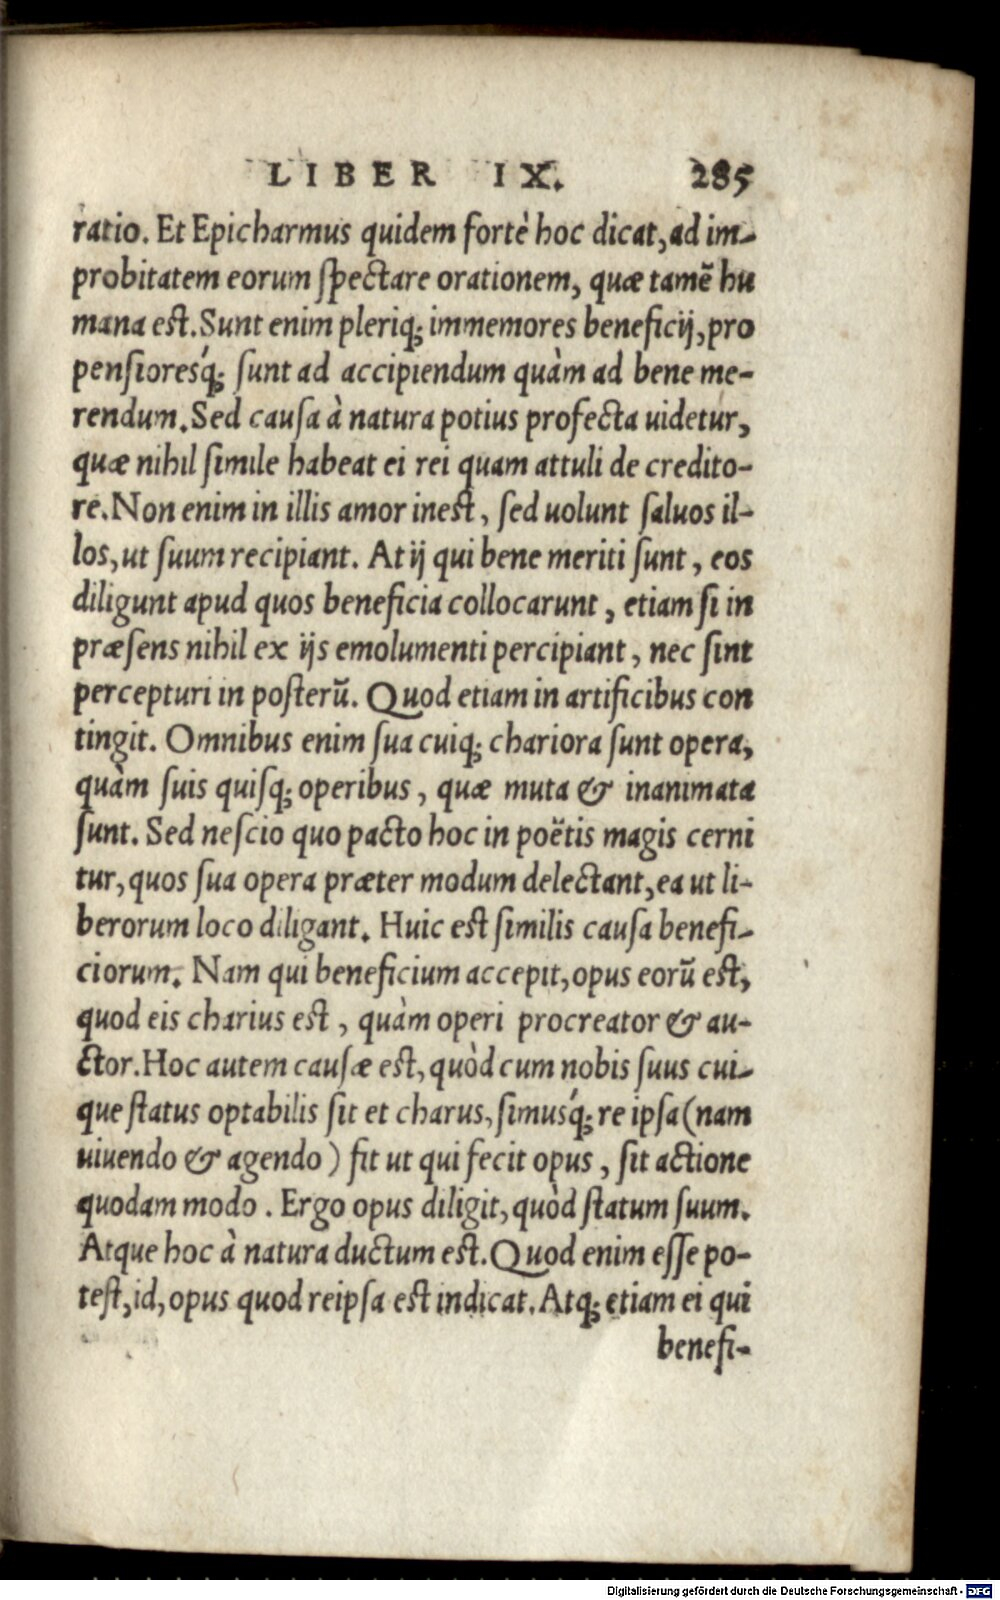 LIBER IX. 285
ratio. Et Epicharmus quidem fortè hoc dicat, ad im-
probitatem eorum ſpectare orationem, quæ tamẽ hu
mana est. Sunt enim pleriq; immemores beneficij, pro
penſioresq́; ſunt ad accipiendum quàm ad bene me-
rendum. Sed cauſa à natura potius profecta uidetur,
quæ nihil ſimile habeat ei rei quam attuli de credito-
re. Non enim in illis amor inest, ſed uolunt ſaluos il-
los, ut ſuum recipiant. At ij qui bene meriti ſunt, eos
diligunt apud quos beneficia collocarunt, etiam ſi in
præſens nihil ex ijs emolumenti percipiant, nec ſint
percepturi in poſterũ. Quod etiam in artificibus con
tingit. Omnibus enim ſua cuiq; chariora ſunt opera,
quàm ſuis quiſq; operibus, quæ muta & inanimata
ſunt. Sed neſcio quo pacto hoc in poëtis magis cerni
tur, quos ſua opera præter modum delectant, ea ut li-
berorum loco diligant. Huic est ſimilis cauſa benefi-
ciorum. Nam qui beneficium accepit, opus eorũ est,
quod eis charius est, quàm operi procreator & au-
ctor. Hoc autem cauſæ est, quòd cum nobis ſuus cui-
que ſtatus optabilis ſit et charus, ſimusq́; re ipſa (nam
uiuendo & agendo) fit ut qui fecit opus, ſit actione
quodam modo. Ergo opus diligit, quòd ſtatum ſuum.
Atque hoc à natura ductum est. Quod enim eſſe po-
teſt, id, opus quod reipſa est indicat. Atq; etiam ei qui
benefi-
Digitalisierung gefördert durch die Deutsche Forschungsgemeinschaft - DFG